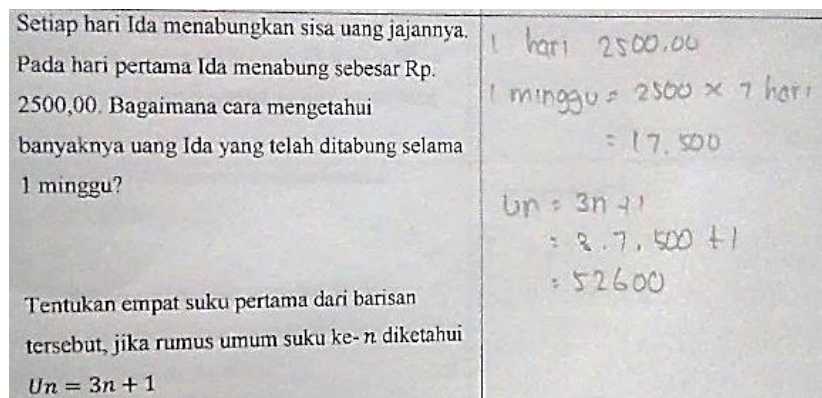 Setiap hari Ida menabungkan sisa uang jajannya.
Pada hari pertama Ida menabung sebesar Rp.
2500,00. Bagaimana cara mengetahui
banyaknya uang Ida yang telah ditabung selama
1 minggu?
Tentukan empat suku pertama dari barisan
tersebut, jika rumus umum suku ke- n diketahui
Un = 3n + 1
1 hari 2500.00
1 minggu = 2500 × 7 hari
= 17.500
Un = 3n + 1
= 3.7.500 + 1
= 52600